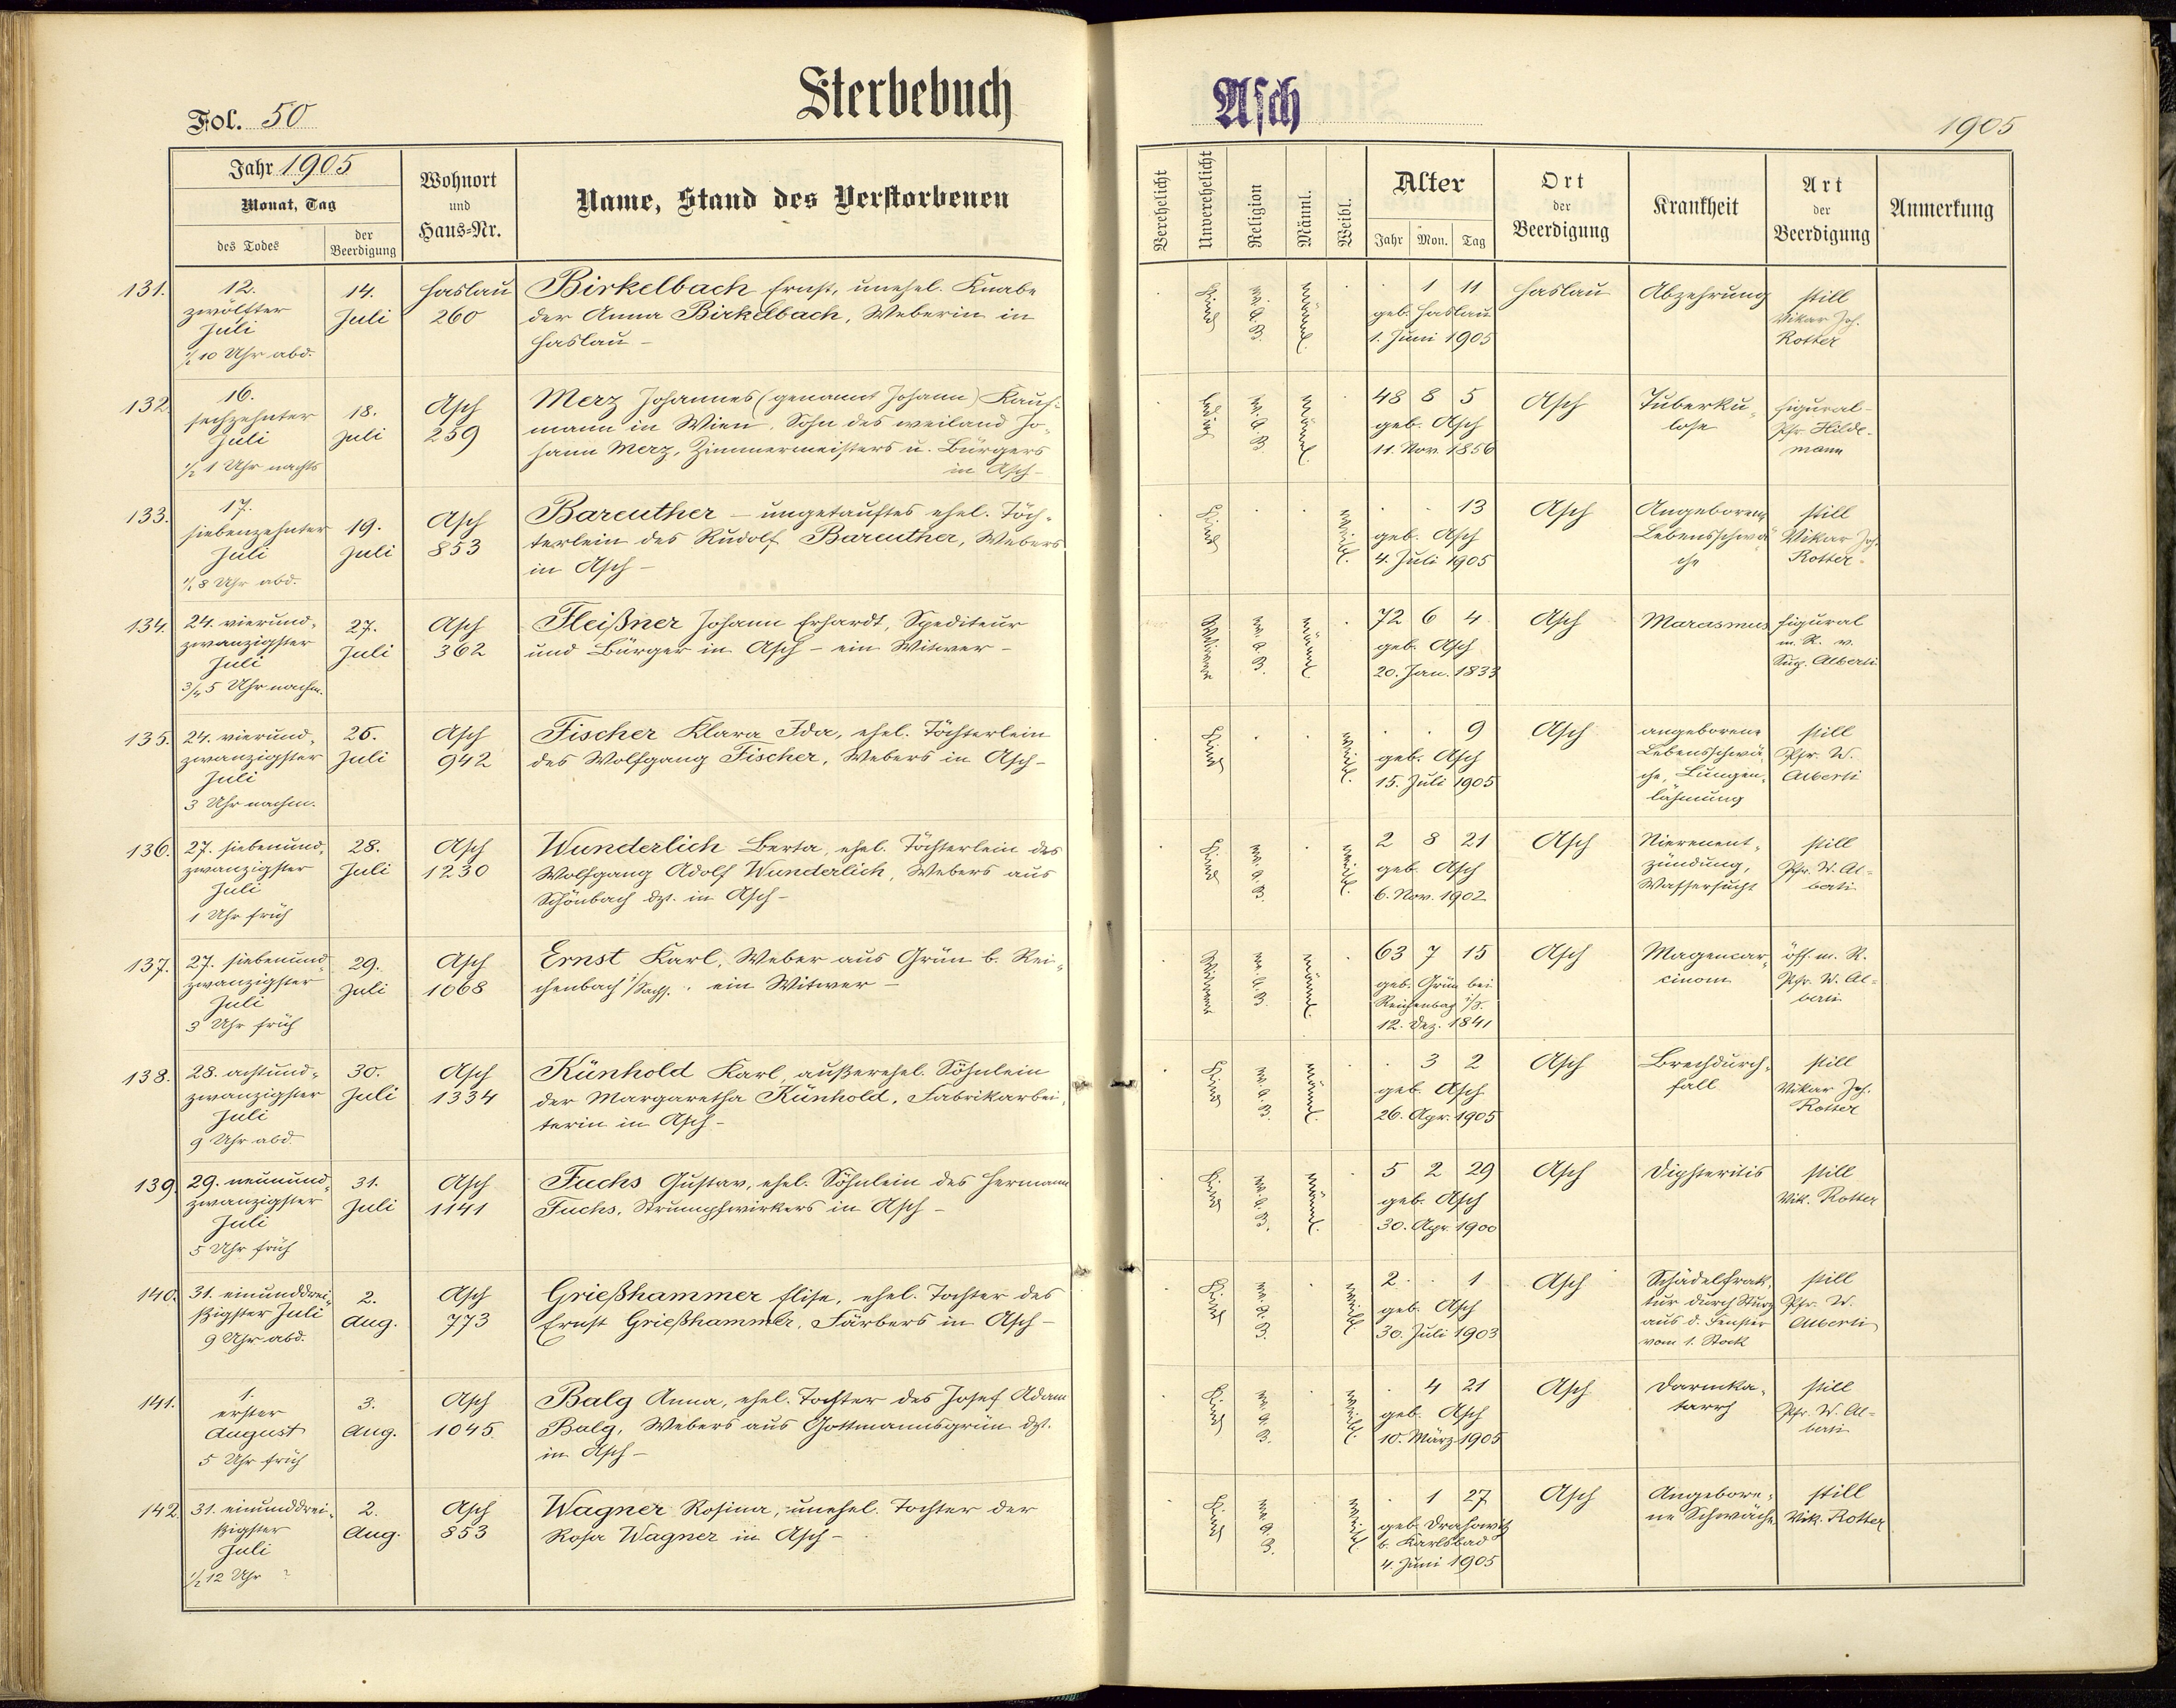 Sterbebuch
Asch
Fol. 50
1905
Jahr 1905
Monat, Tag
des Todes
der Beerdigung
Wohnort
und
Haus=Nr.
Name, Stand des Verstorbenen
Verehelicht
Unverehelicht
Religion
Männl.
Weibl.
Alter
Jahr Mon. Tag
Ort
der
Beerdigung
Krankheit
Art
der
Beerdigung
Anmerkung
131.
12.
zwölfter
Juli
½10 Uhr abd.
14.
Juli
Haslau
260
Birkelbach Ernst, unehel. Knabe
der Anna Birkelbach, Weberin in
Haslau –
Kind
ev. A. B.
männl.
1 11
geb. Haslau
1. Juni 1905
Haslau
Abzehrung
still
Vikar Joh.
Rotter
132.
16.
sechzehnter
Juli
½ 1 Uhr nachts
18.
Juli
Asch
259
Merz Johannes (genannt Johann) Kauf-
mann in Wien, Sohn des weiland Jo-
hann Merz, Zimmermeisters u. Bürgers
in Asch –
ledig
ev. A. B.
männl.
48 8 5
geb. Asch
11. Nov. 1856
Asch
Tuberku-
lose
figural-
Pfr. Hilde-
mann
133.
17.
siebenzehnter
Juli
½8 Uhr abd.
19.
Juli
Asch
853
Bareuther – ungetauftes ehel. Töch-
terlein des Rudolf Bareuther, Webers
in Asch –
Kind
weibl.
13
geb. Asch
4. Juli 1905
Asch
Angeborene
Lebensschwä-
che
still
Vikar Joh.
Rotter
134.
24. vierund-
zwanzigster
Juli
¾ 5 Uhr nachm.
27.
Juli
Asch
362
Fleißner Johann Erhardt, Spediteur
und Bürger in Asch – ein Witwer –
Witwer
ev. A. B.
männl.
72 6 4
geb. Asch
20. Jan. 1833
Asch
Marasmus
figural
m. R. v.
Sup. Alberti
135.
24. vierund-
zwanzigster
Juli
3 Uhr nachm.
26.
Juli
Asch
942
Fischer Klara Ida, ehel. Töchterlein
des Wolfgang Fischer, Webers in Asch –
Kind
weibl.
9
geb. Asch
15. Juli 1905
Asch
angeborene
Lebensschwä-
che, Lungen-
lähmung
still
Pfr. W.
Alberti
136.
27. siebenund-
zwanzigster
Juli
1 Uhr früh
28.
Juli
Asch
1230
Wunderlich Berta, ehel. Töchterlein des
Wolfgang Adolf Wunderlich, Webers aus
Schönbach dzt. in Asch –
Kind
ev. A. B.
weibl.
2 8 21
geb. Asch
6. Nov. 1902
Asch
Nierenent-
zündung,
Wassersucht
still
Pfr. W. Al-
berti
137.
27. siebenund-
zwanzigster
Juli
3 Uhr früh
29.
Juli
Asch
1068
Ernst Karl, Weber aus Grün b. Rei-
chenbach i/Sachs. ein Witwer –
Witwer
ev. A. B.
männl.
63 7 15
geb. Grün bei
Reichenbach i/S.
12. Dez. 1841
Asch
Magencar-
cinom
öff. m. R.
Pfr. W. Al-
berti
138.
28. achtund-
zwanzigster
Juli
9 Uhr abd.
30.
Juli
Asch
1334
Künhold Karl, außerehel. Söhnlein
der Margaretha Künhold, Fabrikarbei-
terin in Asch –
Kind
ev. A. B.
männl.
3 2
geb. Asch
26. Apr. 1905
Asch
Brechdurch-
fall
still
Vikar Joh.
Rotter
139.
29. neunund-
zwanzigster
Juli
5 Uhr früh
31.
Juli
Asch
1141
Fuchs Gustav, ehel. Söhnlein des Hermann
Fuchs, Strumpfwirkers in Asch –
Kind
ev. A. B.
männl.
5 2 29
geb. Asch
30. Apr. 1900
Asch
Diphteritis
still
Vik. Rotter
140.
31. einunddrei-
ßigster Juli
9 Uhr abd.
2.
Aug.
Asch
773
Grießhammer Elise, ehel. Tochter des
Ernst Grießhammer, Färbers in Asch –
Kind
ev. A. B.
weibl.
2 1
geb. Asch
30. Juli 1903
Asch
Schädelfrak-
tur durch Sturz
aus d. Fenster
vom 1. Stock
still
Pfr. W.
Alberti
141.
1.
erster
August
5 Uhr früh
3.
Aug.
Asch
1045
Balg Anna, ehel. Tochter des Josef Adam
Balg, Webers aus Gottmannsgrün dzt.
in Asch –
Kind
ev. A. B.
weibl.
4 21
geb. Asch
10. März 1905
Asch
Darmka-
tarrh
still
Pfr. W. Al-
berti
142.
31. einunddrei-
ßigster
Juli
½ 12 Uhr ?
2.
Aug.
Asch
853
Wagner Rosina, unehel. Tochter der
Rosa Wagner in Asch –
Kind
ev. A. B.
weibl.
1 27
geb. Drahowitz
b. Karlsbad
4. Juni 1905
Asch
Angebore-
ne Schwäche
still
Vik. Rotter